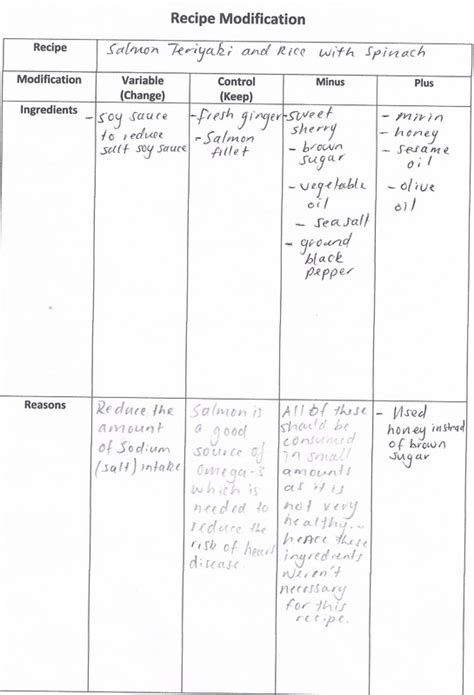 Recipe Modification
Recipe
Salmon Teriyaki and Rice with Spinach
Modification
Variable
(Change)
Control
(Keep)
Minus
Plus
Ingredients
- soy sauce
to reduce
salt soy sauce
- fresh ginger
- Salmon
fillet
- sweet
sherry
- brown
sugar
- vegetable
oil
- sea salt
- ground
black
pepper
- mirin
- honey
- sesame
oil
- olive
oil
Reasons
Reduce the
amount
of Sodium
(salt) intake
Salmon is
a good
source of
omega-3
which is
needed to
reduce the
risk of heart
disease.
All of these
should be
consumed
in small
amounts
as it is
not very
healthy..
hence these
ingredients
weren't
necessary
for this
recipe.
- Used
honey instead
of brown
sugar